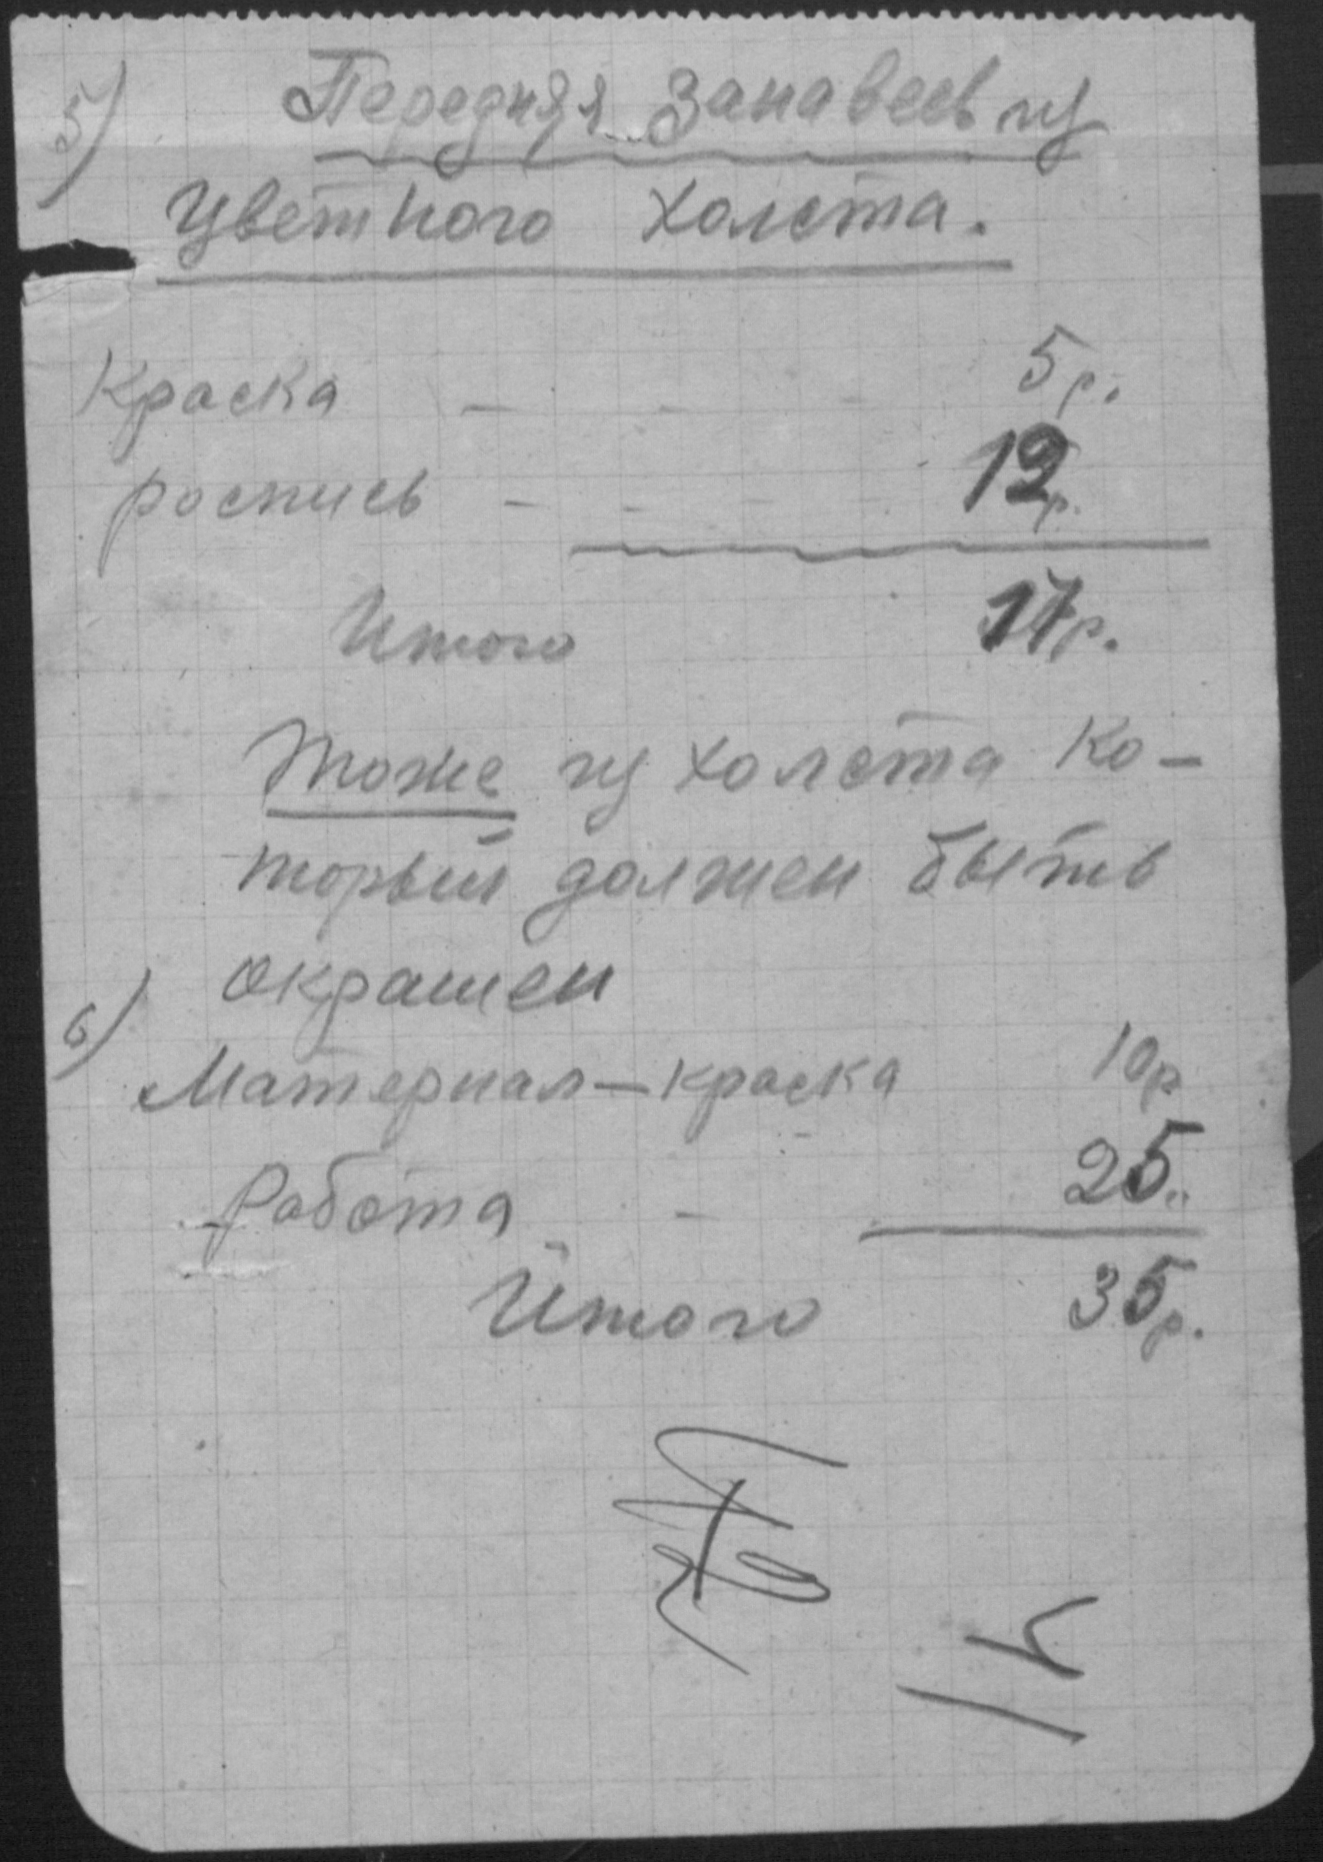 5) Передняя занавесь из
цветного холста.
Краска — - - 5 р.
роспись - - - 12 р.
Итого 17 р.
Тоже из холста ко-
торый должен быть
окрашен
6)
Материал — краска 10 р
Работа - 25 "
Итого 35 р.